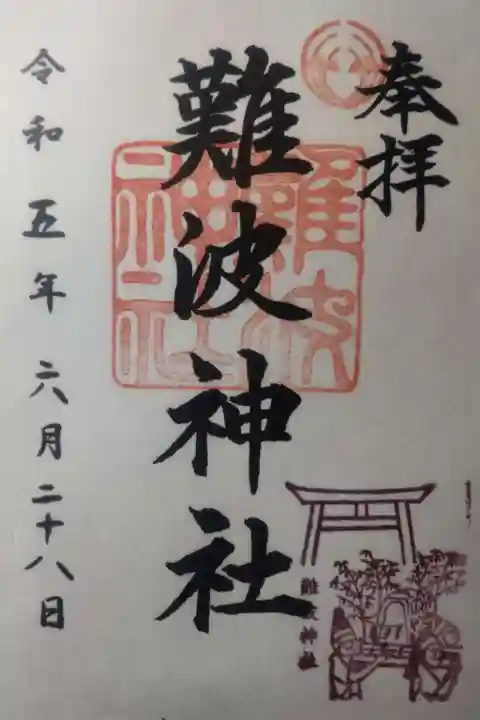 奉拝
難波神社
難波神社
令和五年六月二十八日
難波神社